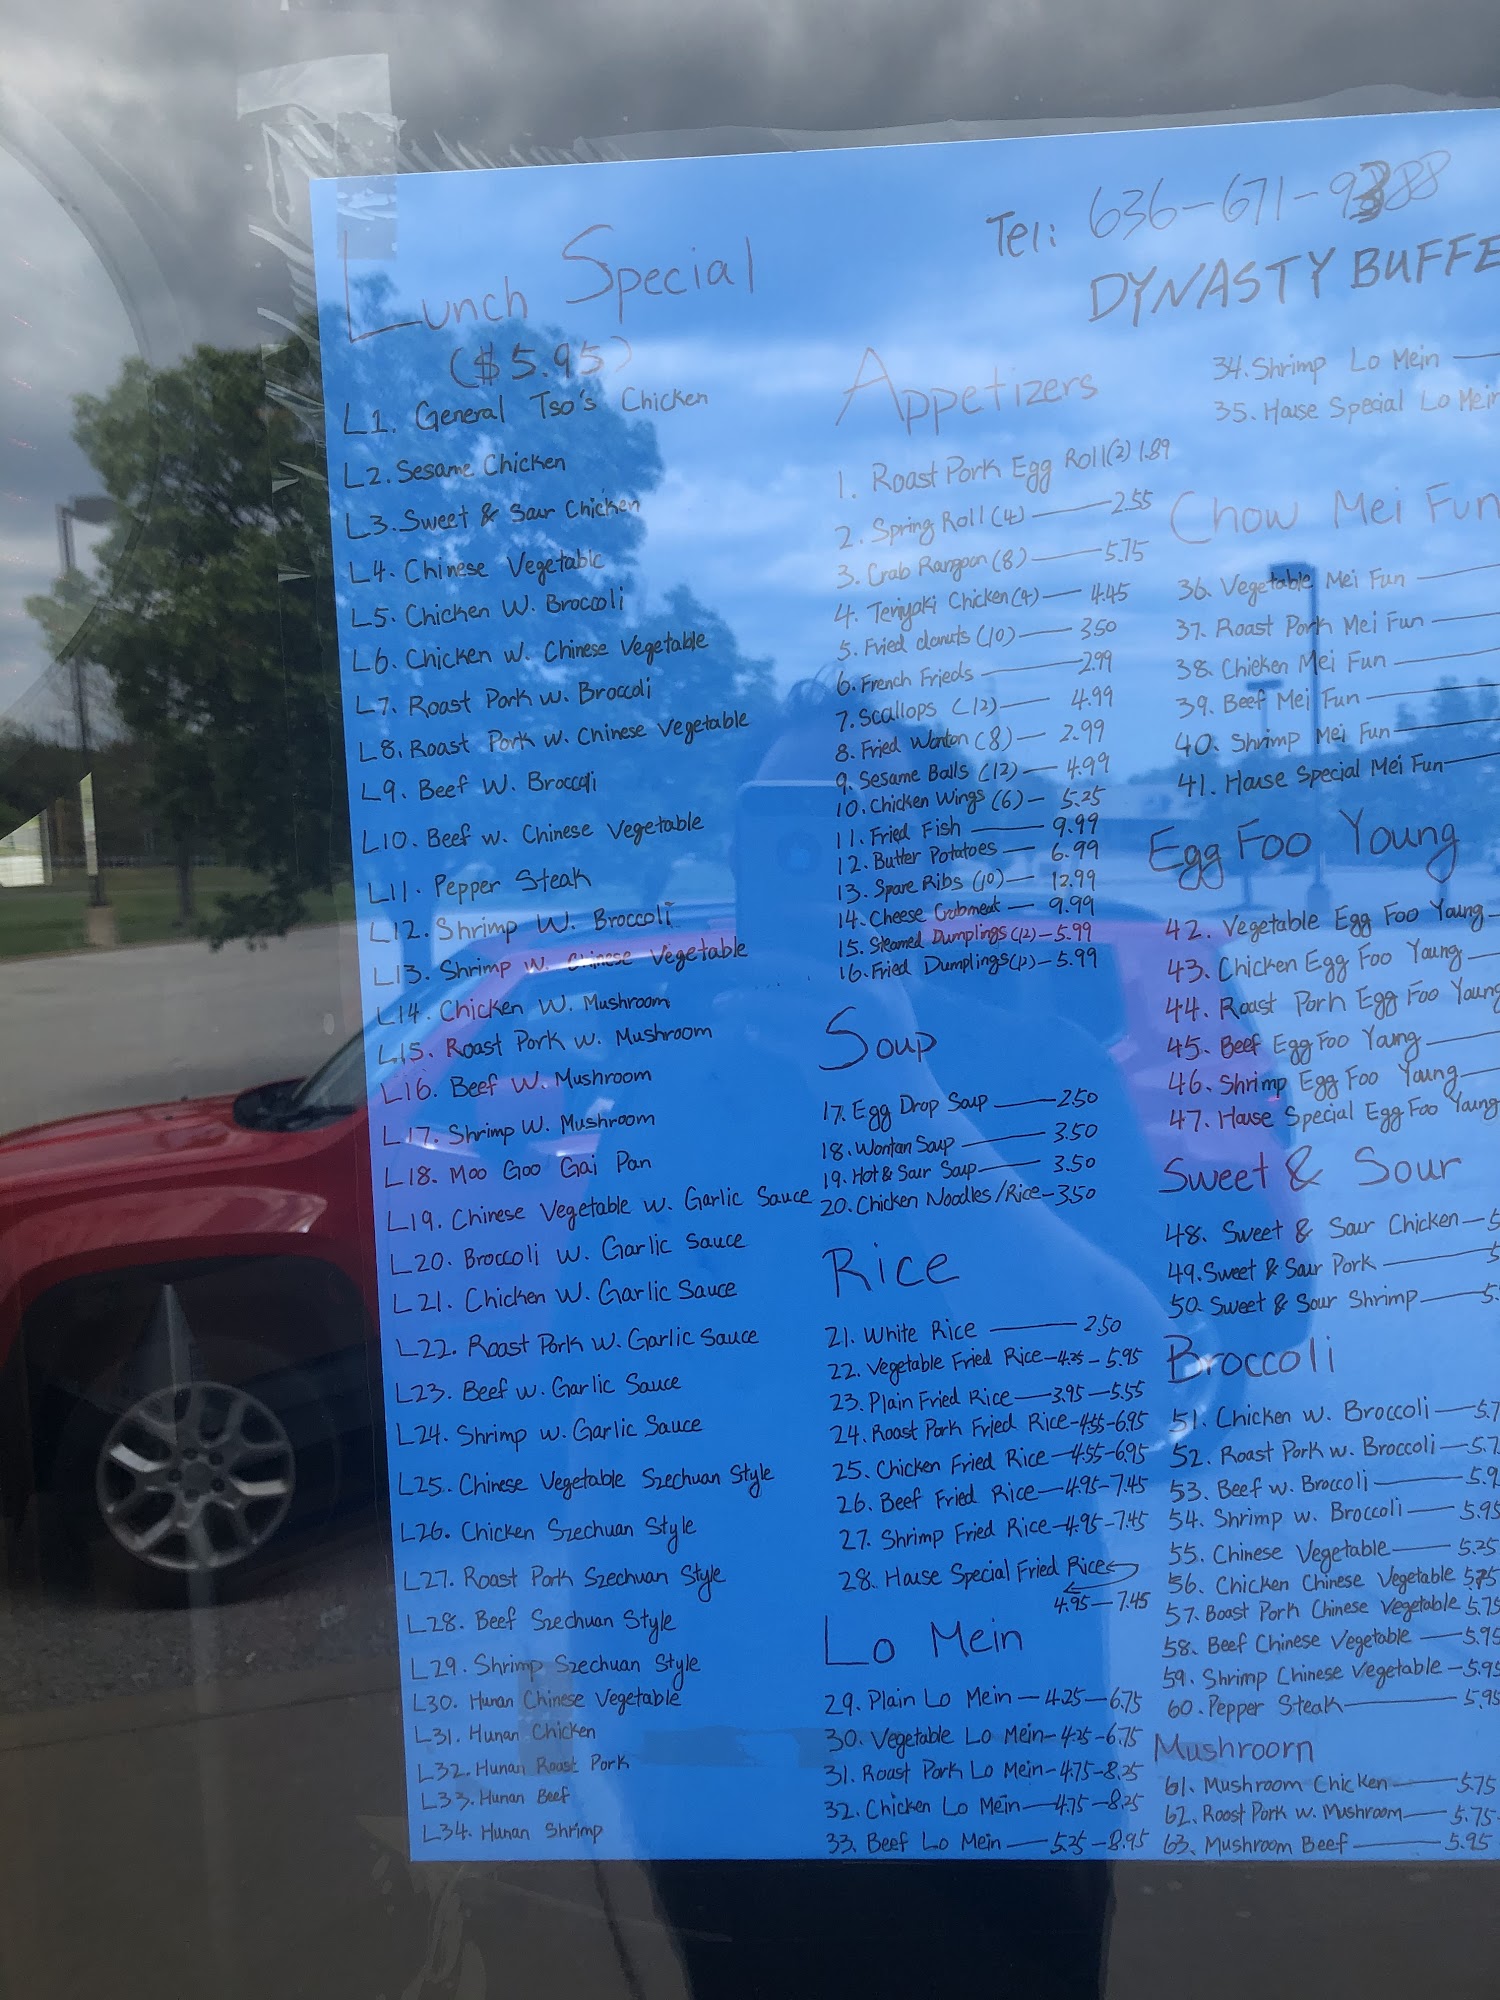 Tel: 636-671-9388
DYNASTY BUFFE
Lunch Special
($5.95)
L1. General Tso's Chicken
L2. Sesame Chicken
L3. Sweet & Sour Chicken
L4. Chinese Vegetable
L5. Chicken W. Broccoli
L6. Chicken w. Chinese Vegetable
L7. Roast Pork w. Broccoli
L8. Roast Pork w. Chinese Vegetable
L9. Beef W. Broccoli
L10. Beef w. Chinese Vegetable
L11. Pepper Steak
L12. Shrimp W. Broccoli
L13. Shrimp w. Chinese Vegetable
L14. Chicken W. Mushroom
L15. Roast Pork w. Mushroom
L16. Beef W. Mushroom
L17. Shrimp W. Mushroom
L18. Moo Goo Gai Pan
L19. Chinese Vegetable w. Garlic Sauce
L20. Broccoli w. Garlic Sauce
L21. Chicken W. Garlic Sauce
L22. Roast Pork w. Garlic Sauce
L23. Beef w. Garlic Sauce
L24. Shrimp w. Garlic Sauce
L25. Chinese Vegetable Szechuan Style
L26. Chicken Szechuan Style
L27. Roast Pork Szechuan Style
L28. Beef Szechuan Style
L29. Shrimp Szechuan Style
L30. Hunan Chinese Vegetable
L31. Hunan Chicken
L32. Hunan Roast Pork
L33. Hunan Beef
L34. Hunan Shrimp
Appetizers
1. Roast Pork Egg Roll(2) 1.89
2. Spring Roll (4) — 2.55
3. Crab Rangoon (8) — 5.75
4. Teriyaki Chicken(4) — 4.45
5. Fried donuts (10) — 3.50
6. French Frieds — 2.99
7. Scallops (12) — 4.99
8. Fried Wonton (8) — 2.99
9. Sesame Balls (12) — 4.99
10. Chicken Wings (6) — 5.25
11. Fried Fish — 9.99
12. Butter Potatoes — 6.99
13. Spare Ribs (10) — 12.99
14. Cheese Crabmeat — 9.99
15. Steamed Dumplings (12) — 5.99
16. Fried Dumplings(12) — 5.99
Soup
17. Egg Drop Soup — 2.50
18. Wonton Soup — 3.50
19. Hot & Sour Soup — 3.50
20. Chicken Noodles/Rice — 3.50
Rice
21. White Rice — 2.50
22. Vegetable Fried Rice — 4.25 — 5.95
23. Plain Fried Rice — 3.95 — 5.55
24. Roast Pork Fried Rice — 4.55 — 6.95
25. Chicken Fried Rice — 4.55 — 6.95
26. Beef Fried Rice — 4.95 — 7.45
27. Shrimp Fried Rice — 4.95 — 7.45
28. House Special Fried Rice
4.95 — 7.45
Lo Mein
29. Plain Lo Mein — 4.25 — 6.75
30. Vegetable Lo Mein — 4.25 — 6.75
31. Roast Pork Lo Mein — 4.75 — 8.25
32. Chicken Lo Mein — 4.75 — 8.25
33. Beef Lo Mein — 5.25 — 8.95
34. Shrimp Lo Mein —
35. House Special Lo Mein
Chow Mei Fun
36. Vegetable Mei Fun —
37. Roast Pork Mei Fun —
38. Chicken Mei Fun —
39. Beef Mei Fun —
40. Shrimp Mei Fun —
41. House Special Mei Fun —
Egg Foo Young
42. Vegetable Egg Foo Young —
43. Chicken Egg Foo Young —
44. Roast Pork Egg Foo Young
45. Beef Egg Foo Young —
46. Shrimp Egg Foo Young —
47. House Special Egg Foo Young
Sweet & Sour
48. Sweet & Sour Chicken — 5
49. Sweet & Sour Pork — 5
50. Sweet & Sour Shrimp — 5.
Broccoli
51. Chicken w. Broccoli — 5.7
52. Roast Pork w. Broccoli — 5.7
53. Beef w. Broccoli — 5.9
54. Shrimp w. Broccoli — 5.95
55. Chinese Vegetable — 5.25
56. Chicken Chinese Vegetable 5.75
57. Boast Pork Chinese Vegetable 5.75
58. Beef Chinese Vegetable — 5.95
59. Shrimp Chinese Vegetable — 5.95
60. Pepper Steak — 5.95
Mushroom
61. Mushroom Chicken — 5.75
62. Roost Pork w. Mushroom — 5.75
63. Mushroom Beef — 5.95